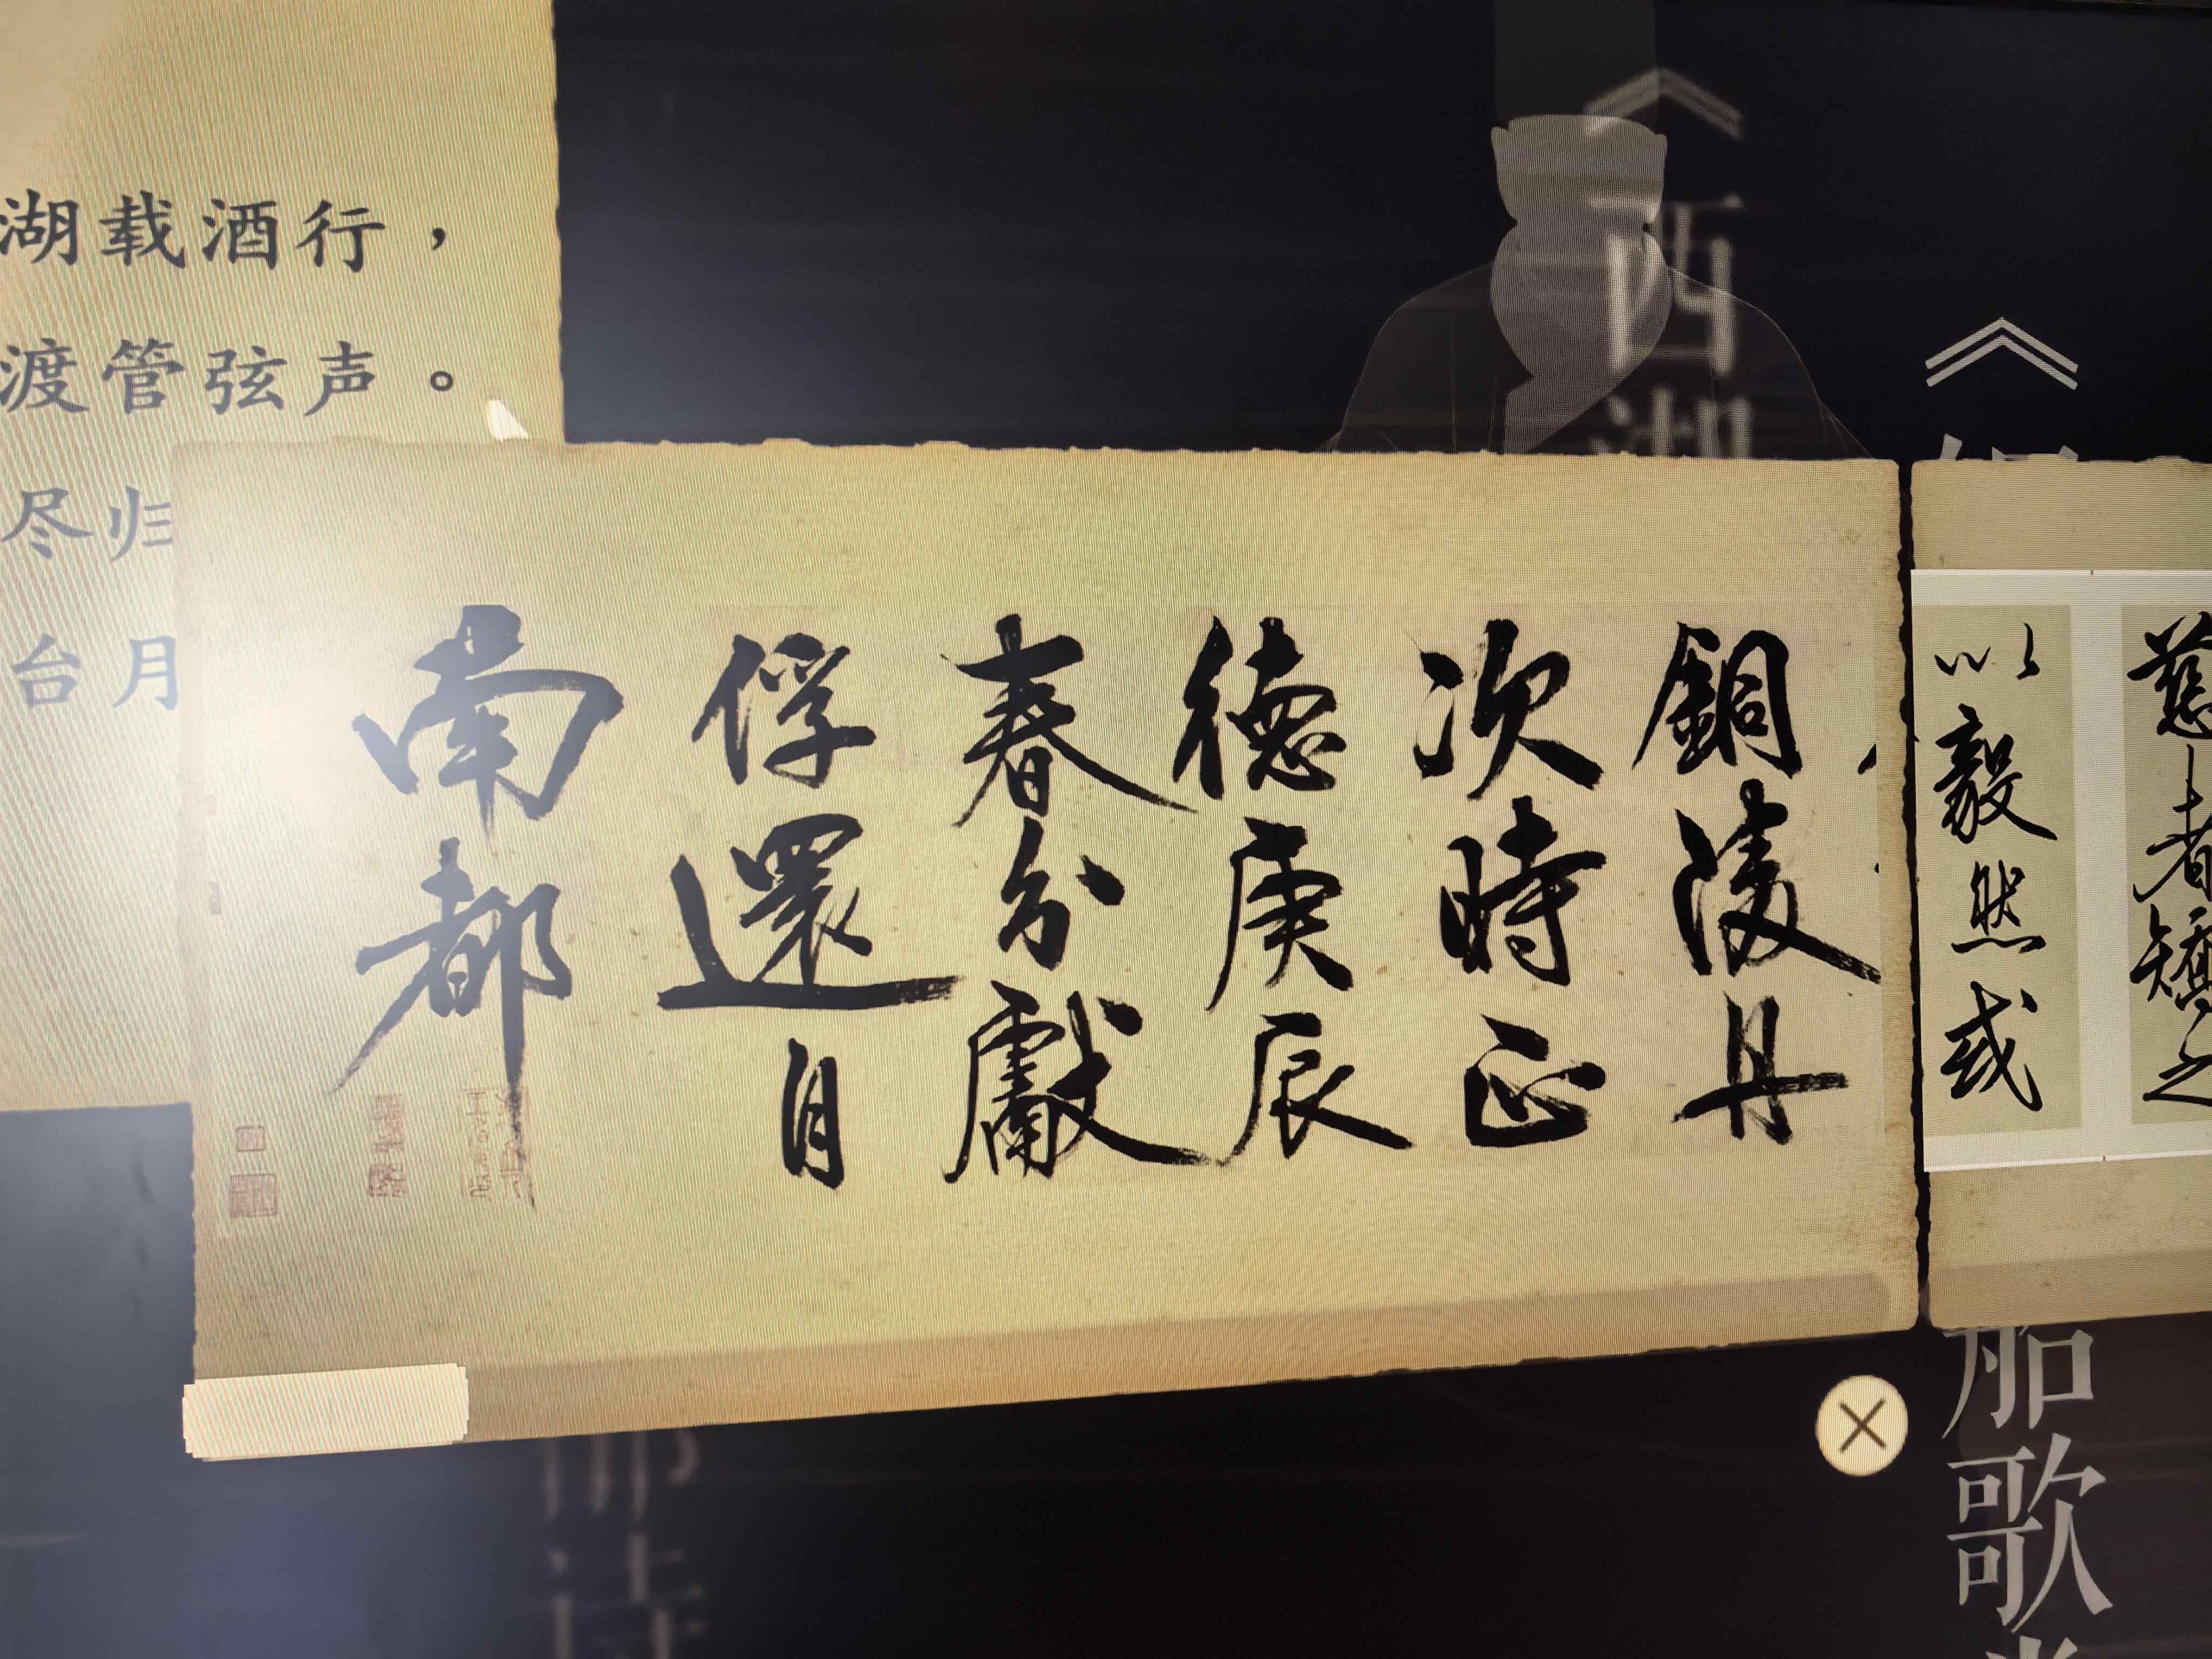 銅陵舟
次時正
德庚辰
春分獻
俘還自
南都
慈者矯之
以毅然或
湖载酒行，
渡管弦声。
尽归
台月
《西湖
《
船歌